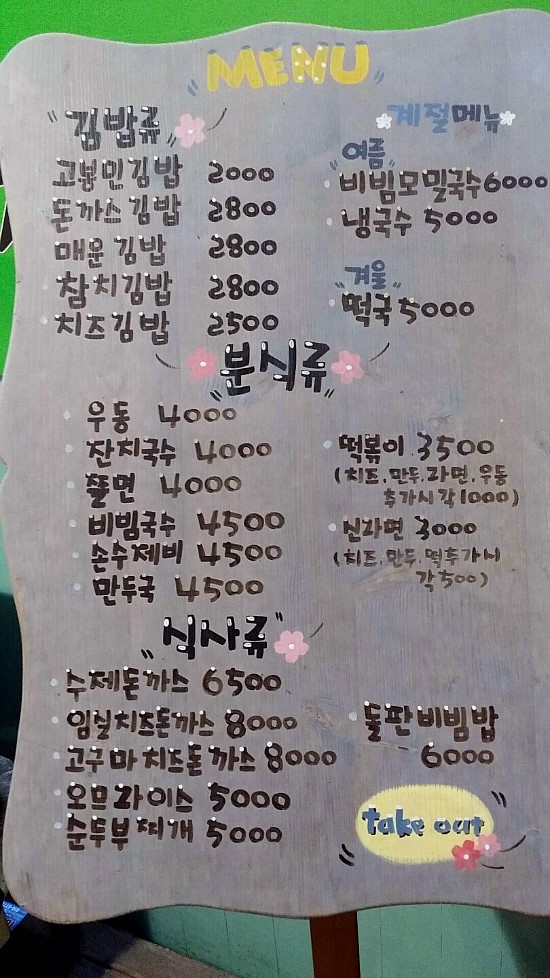 MENU
김밥류
고봉민김밥 2000
돈까스김밥 2800
매운김밥 2800
참치김밥 2800
치즈김밥 2500
계절메뉴
"여름"
비빔모밀국수 6000
냉국수 5000
"겨울"
떡국 5000
"분식류"
우동 4000
잔치국수 4000
쫄면 4000
비빔국수 4500
손수제비 4500
만두국 4500
떡볶이 3500
(치즈.만두.라면.우동
추가시 각1000)
신라면 3000
(치즈.만두.떡추가시
각500)
"식사류"
수제돈까스 6500
임실치즈돈까스 8000
고구마치즈돈까스 8000
오므라이스 5000
순두부찌개 5000
돌판비빔밥
6000
take out